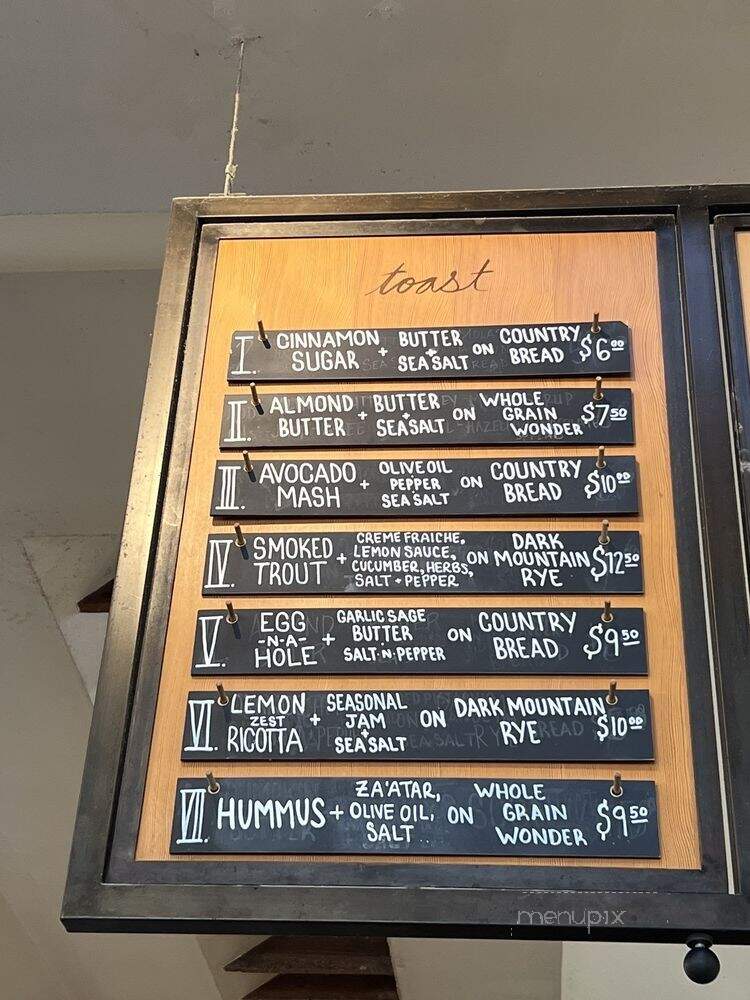 toast
I. CINNAMON SUGAR + BUTTER + SEA SALT ON COUNTRY BREAD $6.00
II. ALMOND BUTTER + BUTTER + SEA SALT ON WHOLE GRAIN WONDER $7.50
III. AVOCADO MASH + OLIVE OIL PEPPER SEA SALT ON COUNTRY BREAD $10.00
IV. SMOKED TROUT + CREME FRAICHE, LEMON SAUCE, CUCUMBER, HERBS, SALT + PEPPER ON DARK MOUNTAIN RYE $12.50
V. EGG -N-A- HOLE + GARLIC SAGE BUTTER SALT-N-PEPPER ON COUNTRY BREAD $9.50
VI. LEMON ZEST RICOTTA + SEASONAL JAM + SEA SALT ON DARK MOUNTAIN RYE $10.00
VII. HUMMUS + ZA'ATAR, OLIVE OIL, SALT ON WHOLE GRAIN WONDER $9.50
menupix